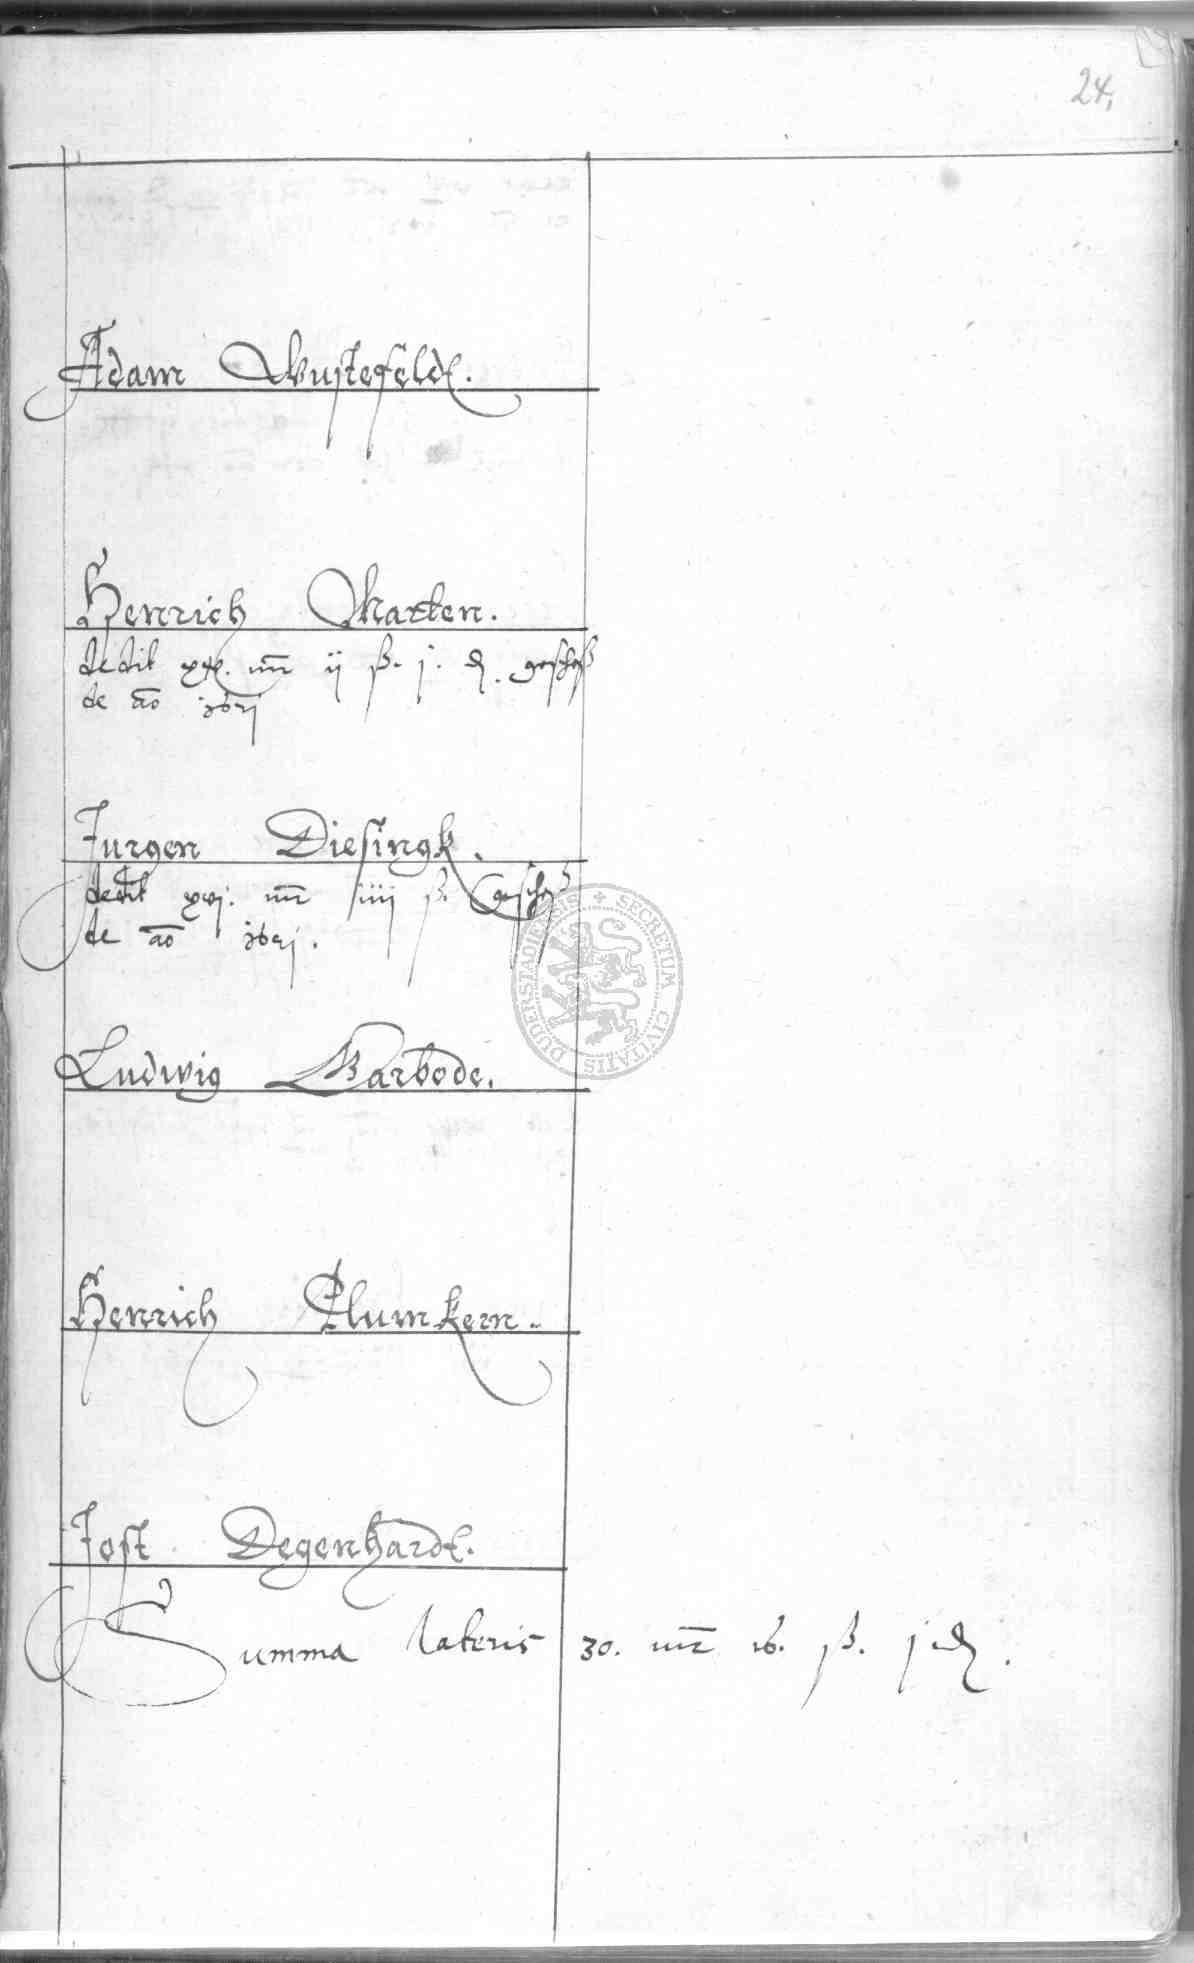 24.
Adam Wustefeldt.
Henrich Marten.
dedit mr ij ß. j. ₰. geschoß
de ao
Jurgen Diesingk.
dedit xvj. mr iiij ß. Geschoß
de ao
Ludwig Warbode.
Henrich Plumkern.
Jost Degenhardt.
Summa lateris 30. mr 16. ß. j ₰.
SECRETUM CIVITATIS DUDERSTADIENSIS